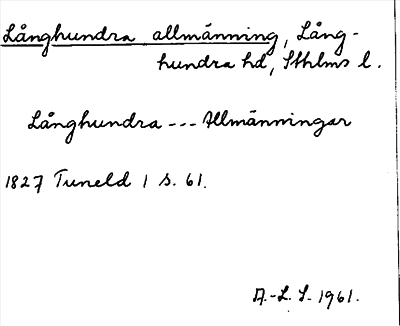 Långhundra allmänning, Lång-
hundra hd, Sthlms l.
Långhundra --- Allmänningar
1827 Tuneld 1 s. 61.
A.-L. S. 1961.